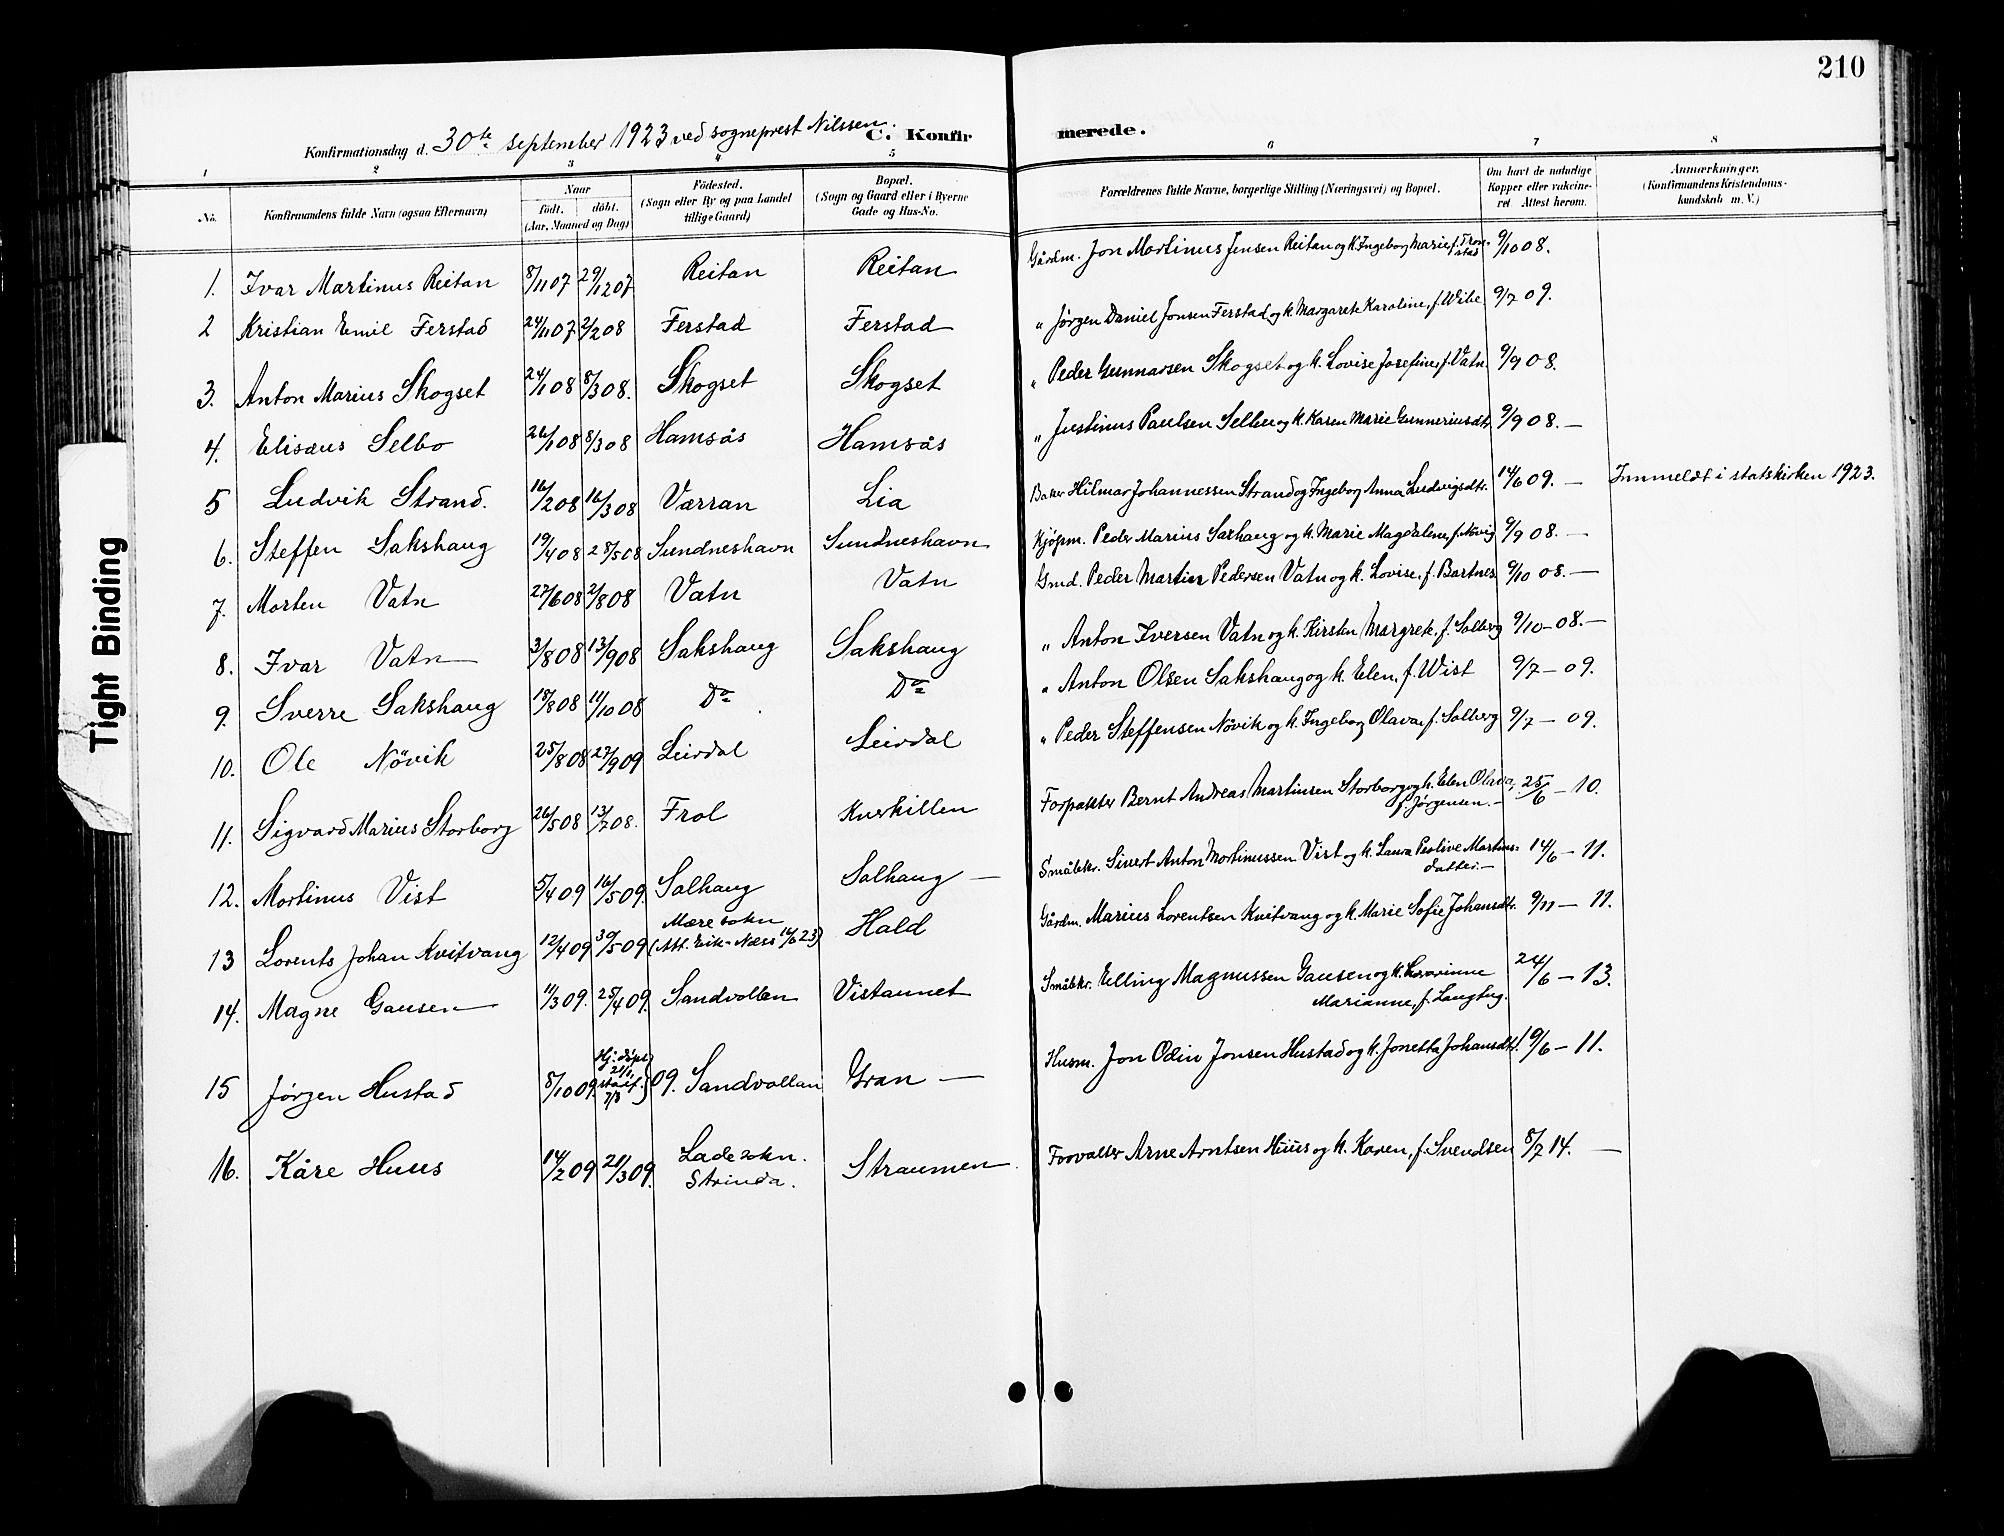 210
Konfirmationsdag d. 30te september 1923 ved sogneprest Nilssen. C. Konfirmerede.
1 2 3 4 5 6 7 8
No. Konfirmandens fulde Navn (ogsaa Efternavn) Naar født. døbt. (Aar, Maaned og Dag) Fødested. (Sogn eller By og paa Landet tillige Gaard) Bopæl. (Sogn og Gaard eller i Byerne Gade og Hus-No. Forældrenes fulde Navne, borgerlige Stilling (Næringsvei) og Bopæl. Om havt de naturlige Kopper eller vakcineret Attest herom. Anmærkninger. (Konfirmandens Kristendomskundskab m. V.)
1. Ivar Martinus Reitan 8/11 07 29/12 07 Reitan Reitan Gårdm. Jon Martinus Jensen Reitan og k. Ingeborg Marie, f. Tronstad 9/10 08.
2 Kristian Emil Ferstad 24/11 07 2/2 08 Ferstad Ferstad " Jørgen Daniel Jonsen Ferstad og k. Margarete Karoline, f. Wibe 9/7 09.
3. Anton Marius Skogset 24/1 08 8/3 08. Skogset Skogset " Peder Gunnarsen Skogset og k. Lovise Josefine, f. Vatn. 9/9 08.
4. Elisæus Selbo 26/1 08 8/3 08 Hamsås Hamsås " Justinus Paulsen Selbu og k. Karen Marie Gunneriusdtr. 9/9 08. —
5 Ludvik Strand. 16/2 08 16/3 08 Værran Lia Baker Hilmar Johannessen Strand og Ingeborg Anna Ludvigsdtr. 14/6 09. — Innmeldt i statskirken 1923.
6. Steffen Sakshaug 19/4 08 28/5 08 Sundneshavn Sundneshavn Kjøpm. Peder Marius Saxhaug og k. Marie Magdalene, f. Növig 9/9 08. —
7. Morten Vatn 27/6 08 2/8 08 Vatn Vatn Gmd. Peder Martin Pedersen Vatn og k. Lovise, f. Bartnes. 9/10 08. —
8. Ivar Vatn 3/8 08 13/9 08 Sakshaug Sakshaug " Anton Iversen Vatn og k. Kirsten Margrete, f. Solberg 9/10 — 08. —
9. Sverre Sakshaug 18/8 08 11/10 08 Do Do " Anton Olsen Sakshaug og k. Elen, f. Wist 9/7 — 09.
10. Ole Növik 25/8 08 27/9 09 Leirdal Leirdal " Peder Steffensen Növik og k. Ingeborg Olava, f. Solberg 9/7 — 09.
11. Sigvard Marius Storborg 26/5 08 13/7 08. Frol Kverkillen Forpakter Bernt Andreas Martinsen Storborg og k. Elen Olava, f. Jørgensen. — 25/6 — 10.
12. Martinus Vist 5/4 09 16/5 09. Salhaug Salhaug — Småbkr. Sivert Anton Mortinussen Vist og k. Laura Peolive Martinsdatter. — 14/6 — 11.
13 Lorents Johan Kvitvang 12/4 09 30/5 09 Mære sokn (Att. Erik Næss 14/6 23) Hald Gårdm. Marius Lorentsen Kvitvang og k. Marie Sofie Johansdtr. 9/11 — 11.
14. Magne Gausen 11/3 09. 25/4 09. Sandvollen Vistaunet Småbkr. Elling Magnussen Gausen og k. Marianne, f. Langhug. 24/6 — 13.
15 Jørgen Hustad 8/10 09. Hj. døpt 21/1, stadf. 7/8 } 09. Sandvollan Gran — Husm. Jon Odin Jonsen Hustad og k. Jonetta Johansdtr. 19/6 — 11.
16. Kåre Huus 14/2 09 21/3 09. Lade sokn. Strinda. Straumen Forvalter Arne Arntsen Huus og k. Karen, f. Svendsen 8/7 14. —
Tight Binding